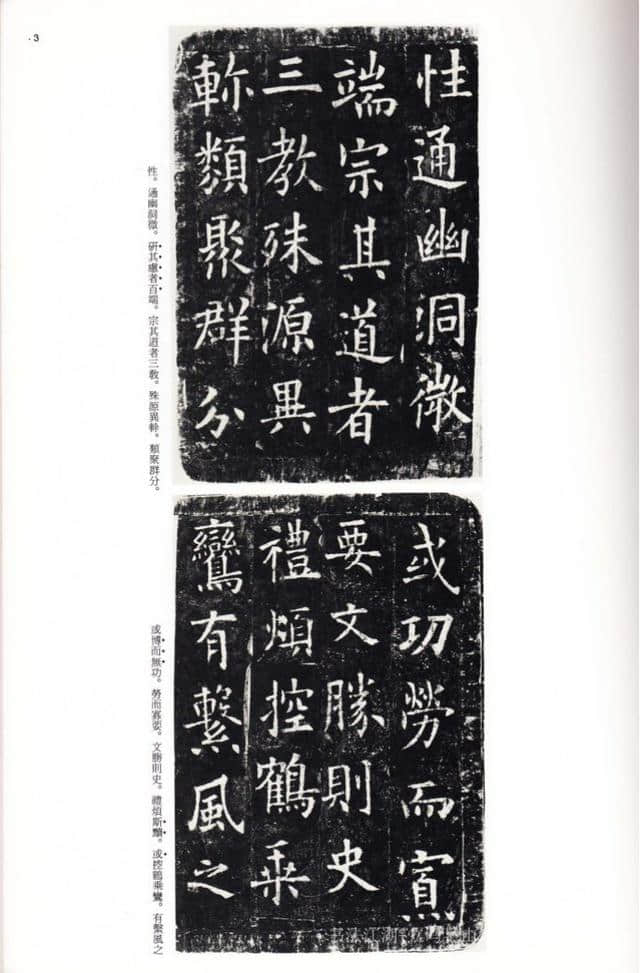 ·3
性通幽洞微
端宗其道者
三教殊源異
軫類聚群分
性。通幽洞微。研其慮者百端。宗其道者三教。殊源異軫。類聚群分。
或功勞而寡
要文勝則史
禮煩控鶴乘
鸞有繫風之
或博而無功。勞而寡要。文勝則史。禮煩斯黷。或控鶴乘鸞。有繫風之